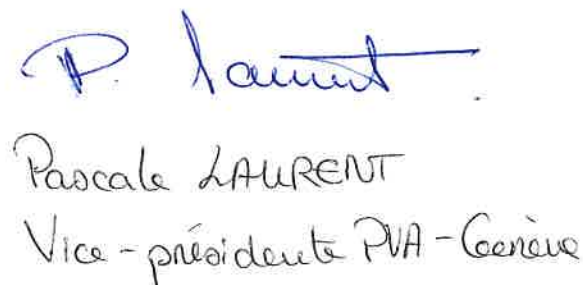 P. Laurent
Pascale LAURENT
Vice-présidente PVA-Genève